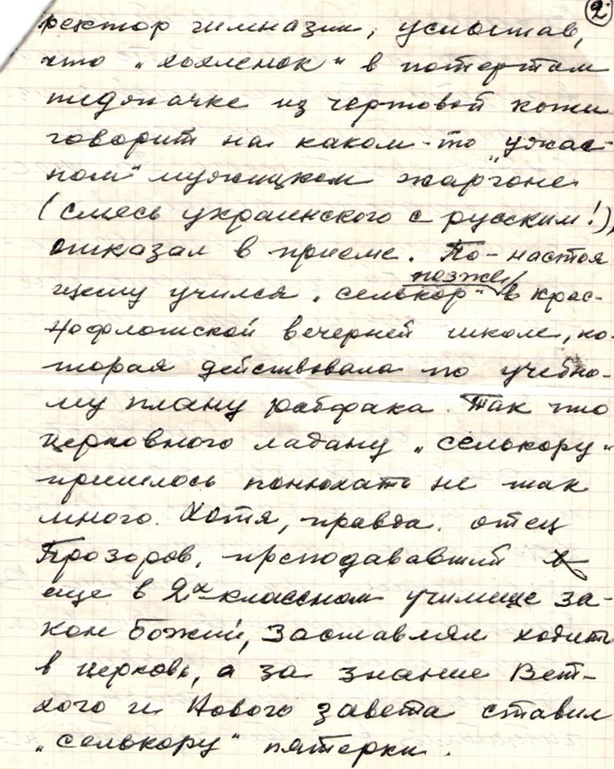 2
ректор гимназии, услышав,
что „хохленок" в потертом
пиджачке из чертовой кожи
говорит на каком-то „ужас-
ном" мужицком жаргоне
(смесь украинского с русским!),
отказал в приеме. По-настоя
щему учился „селькор" позже в крас-
нофлотской вечерней школе, ко-
торая действовала по учебно-
му плану рабфака. Так что
церковного ладану „селькору"
пришлось понюхать не так
много. Хотя, правда, отец
Прозоров, преподававший
еще в 2х классном училище за-
кон Божий, заставлял ходить
в церковь, а за знание Вет-
хого и Нового завета ставил
„селькору" пятерки.